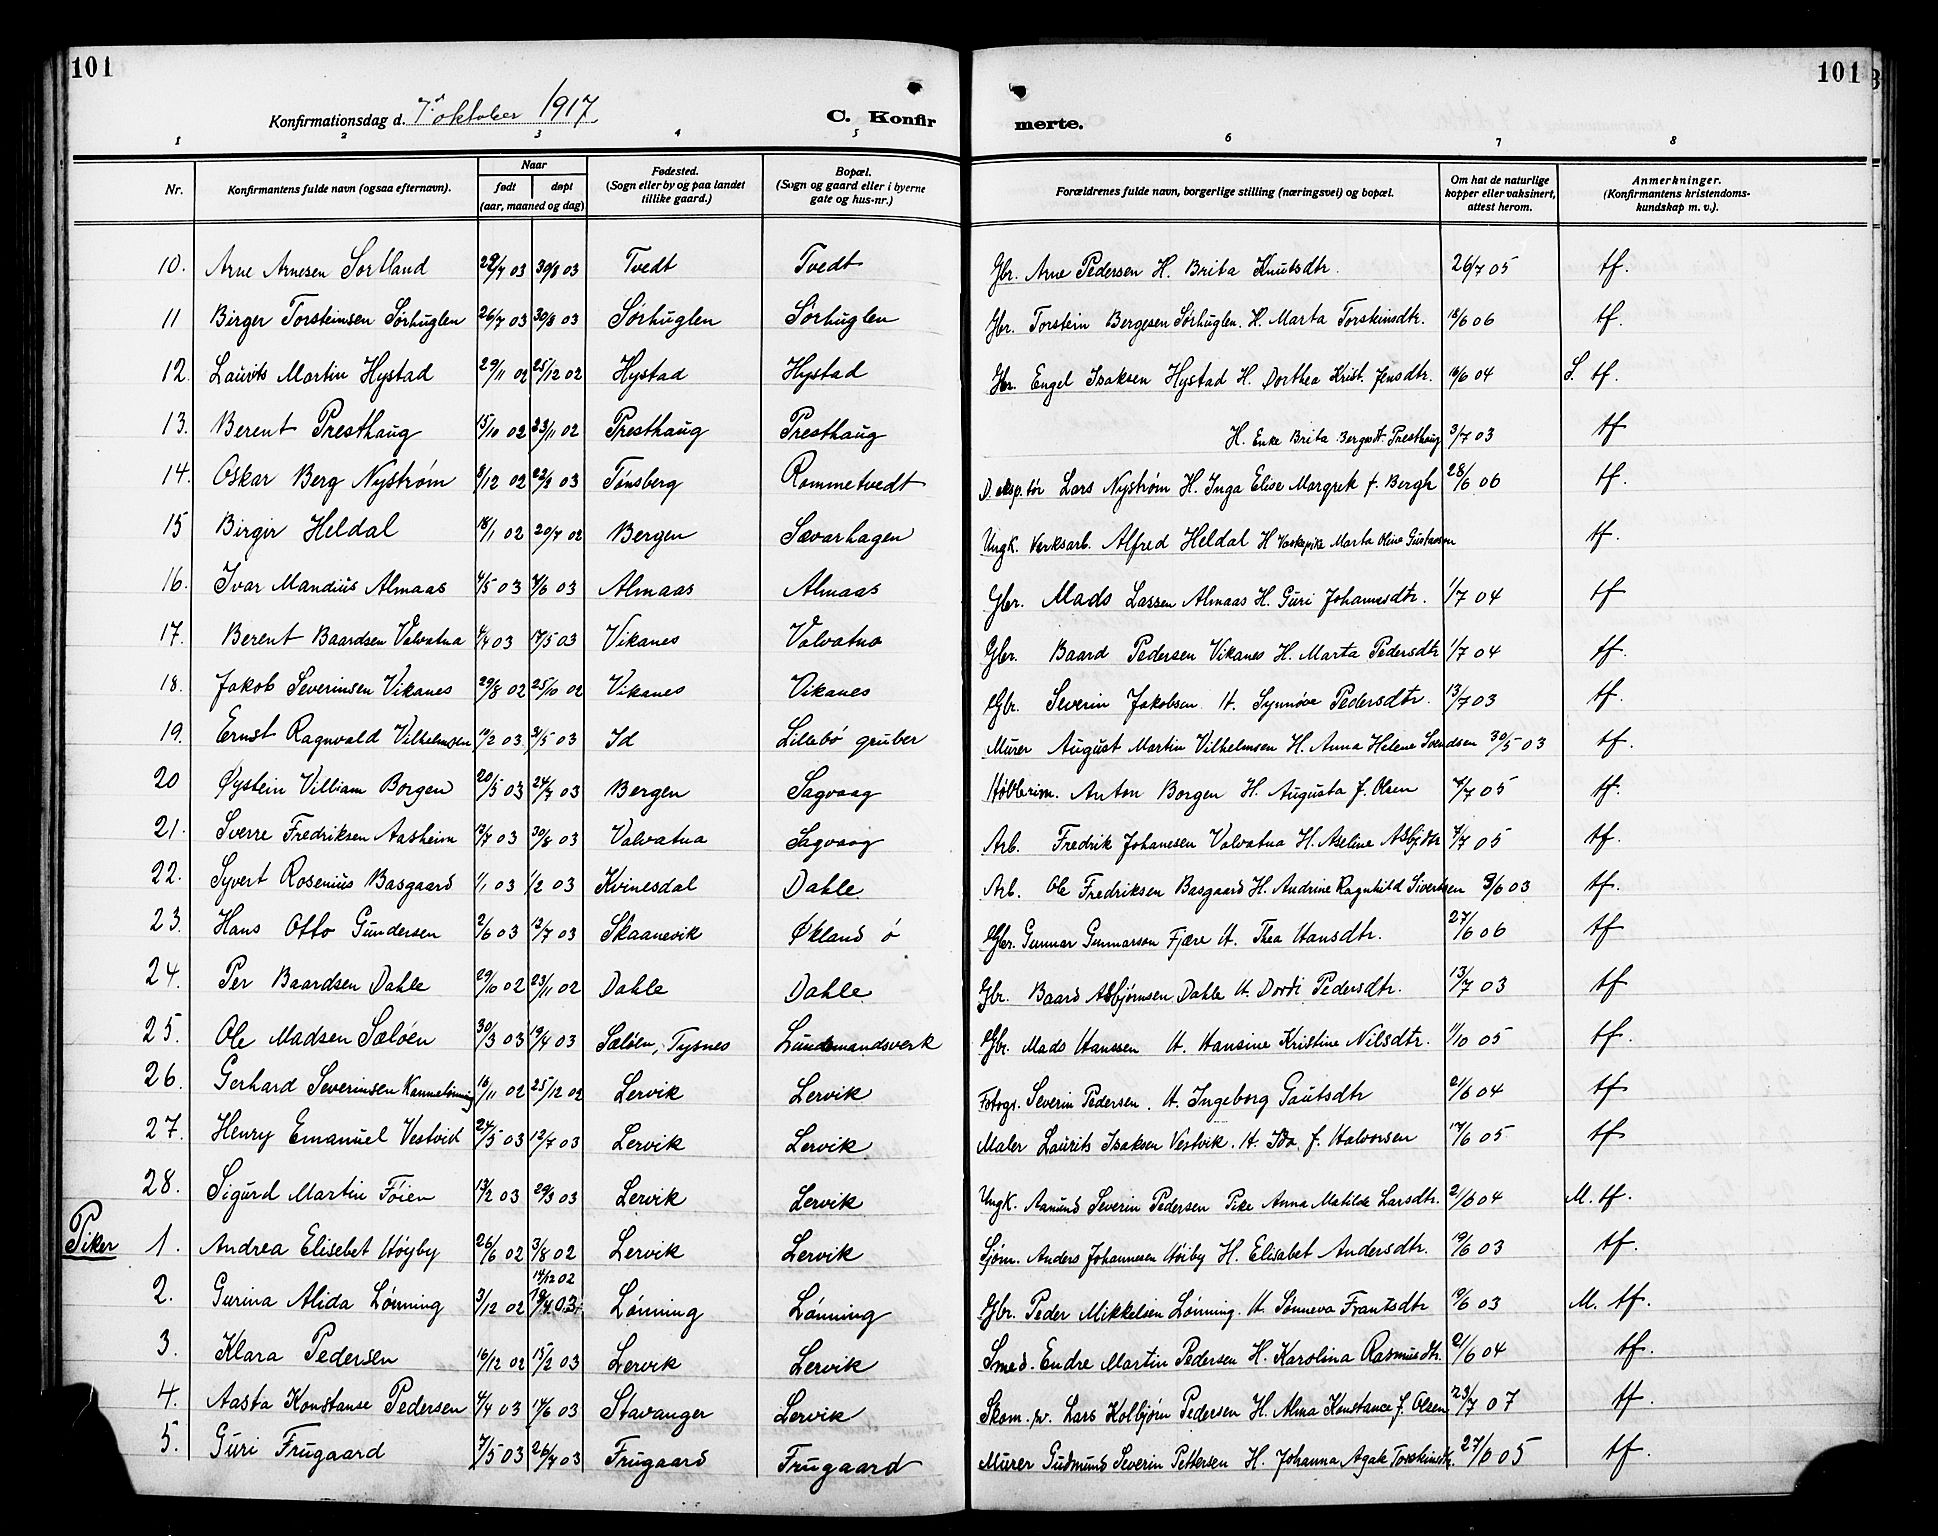 101
101
Konfirmationsdag d. 7de oktober 1917.
C. Konfirmerte.
1 2 3 4 5 6 7 8
Nr. | Konfirmantens fulde navn (ogsaa efternavn). | Naar født | døpt (aar, maaned og dag) | Fødested. (Sogn eller by og paa landet tillike gaard.) | Bopæl. (Sogn og gaard eller i byerne gate og hus-nr.) | Forældrenes fulde navn, borgerlige stilling (næringsvei) og bopæl. | Om hat de naturlige kopper eller vaksinert, attest herom. | Anmerkninger. (Konfirmantens kristendomskundskap m. v.).
10. Arne Arnesen Sortland 29/7 03 30/8 03 Tvedt Tvedt Gbr. Arne Pedersen H. Brita Knutsdtr. 26/7 05 tf.
11 Birger Torsteinsen Sørhuglen 26/7 03 30/8 03 Sørhuglen Sørhuglen Gbr. Torstein Bergesen Sørhuglen. H. Marta Torsteinsdtr. 18/6 06 tf.
12. Laurits Martin Hystad 29/11 02 25/12 02 Hystad Hystad Gbr. Engel Isaksen Hystad H. Dorthea Krist. Jensdtr. 16/6 04 S. tf.
13. Berent Presthaug 15/10 02 23/11 02 Presthaug Presthaug H. Enke Brita Bergesdt. Presthaug 3/7 03 tf
14. Oskar Berg Nystrøm 8/12 02 22/3 03 Tønsberg Rommetvedt D. eksp.tør Lars Nystrøm H. Inga Elise Margrete f. Bergh 28/6 06 tf.
15 Birger Heldal 18/1 02 20/7 02 Bergen Sævarhagen Ungk. Verksarb. Alfred Heldal H Vaskepike Marta Oline Gustavsen tf.
16. Ivar Mandius Almaas 4/5 03 7/6 03 Almaas Almaas Gbr. Mads Larsen Almaas H. Guri Johannesdtr. 1/7 04 tf
17. Berent Baardsen Valvatna 4/4 03 17/5 03 Vikanes Valvatna Gbr. Baard Pedersen Vikanes H. Marta Pedersdtr 1/7 04 tf.
18. Jakob Severinsen Vikanes 29/8 02 25/10 02 Vikanes Vikanes Gbr. Severin Jakobsen H. Synnøve Pedersdtr. 13/7 03 tf.
19. Ernst Ragnvald Vilhelmsen 19/2 03 31/5 03 Id Lillebø gruber Murer August Martin Vilhelmsen H. Anna Helene Svendsen 30/5 03 tf.
20 Øystein Villiam Borgen 20/5 03 24/7 03 Bergen Sagvaag Anton Borgen H. Augusta f. Olsen 4/7 05 tf.
21. Sverre Fredriksen Aasheim 13/7 03 30/8 03 Valvatna Sagvaag Arb. Fredrik Johanesen Valvatna H. Aseline Asbjdtr 4/7 05 tf.
22. Syvert Rosenius Basgaard 1/1 03 1/2 03 Kvinesdal Dahle. Arb. Ole Fredriksen Basgaard H. Andrine Ragnhild Sivertsen 9/6 03 tf.
23. Hans Otto Gundersen 2/6 03 12/7 03 Skaanevik Økland ø Gbr. Gunnar Gunnarson Fjære H. Thea Hansdtr. 27/6 06 tf
24. Per Baardsen Dahle 29/10 02 23/11 02 Dahle Dahle Gbr. Baard Asbjørnsen Dahle H. Dordi Pedersdtr. 13/7 03 tf
25. Ole Madsen Sæløen 30/3 03 19/4 03 Sæløen, Tysnes Lundemandsverk Gbr. Mads Hanssen H. Hansine Kristine Nilsdtr. 11/10 05 tf.
26. Gerhard Severinsen Kannelønning 16/11 02 25/12 02 Lervik Lervik Fotogr. Severin Pedersen. H. Ingeborg Gautsdtr 21/6 04 tf
27. Henry Emanuel Vestvid 24/5 03 12/7 03 Lervik Lervik Maler Laurits Isaksen Vestvik. H. Ida f. Halvorsen 17/6 05 tf
28. Sigurd Martin Føien 13/2 03 29/3 03 Lervik Lervik Ungk. Aamund Severin Pedersen Pike Anna Matilde Larsdtr. 21/6 04 M. tf.
Piker 1. Andrea Elisebet Høyby 26/6 02 3/8 02 Lervik Lervik Sjøm. Anders Johannesen Høiby H. Elisabet Andersdtr. 19/6 03 tf.
2. Gurina Alida Lønning 3/12 02 14/12 02 19/4 03 Lønning Lønning Gbr. Peder Mikkelsen Lønning. H. Sønneva Frantsdtr 9/6 03 M. tf.
3. Klara Pedersen 16/12 02 15/2 03 Lervik Lervik Smed. Endre Martin Pedersen H. Karolina Rasmusdtr. 21/6 04 tf.
4. Aasta Konstanse Pedersen 4/4 03 14/6 03 Stavanger Lervik Skom. Lars Kolbjørn Pedersen H. Alma Konstance f. Olsen. 23/7 07 tf
5. Guri Frugaard 7/5 03 26/7 03 Frugaard Frugaard Murer Gudmund Severin Pettersen H. Johanna Agate Torsteinsdtr. 27/6 05 tf.